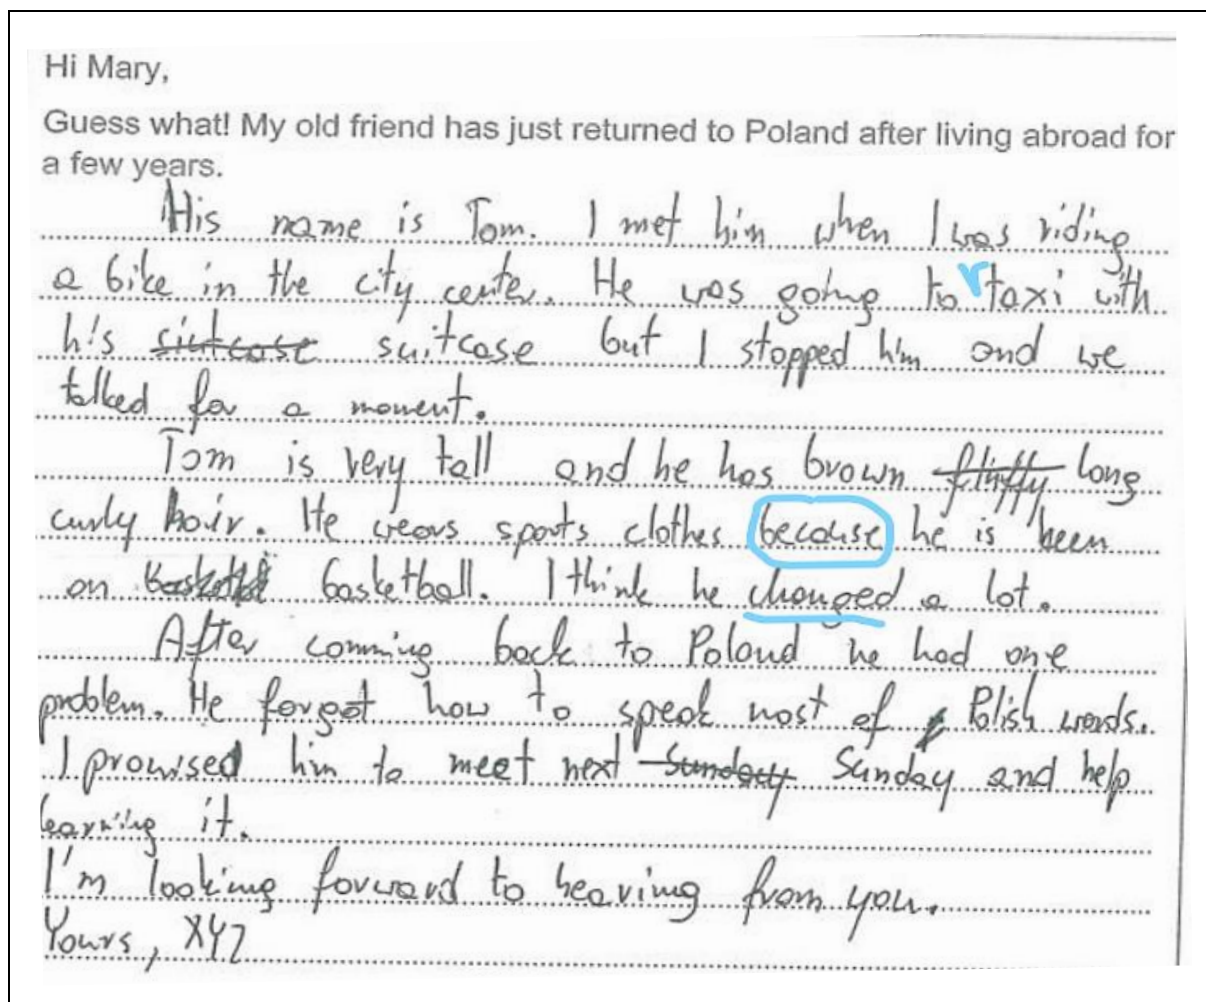 Hi Mary,
Guess what! My old friend has just returned to Poland after living abroad for
a few years.
His name is Tom. I met him when I was riding
a bike in the city center. He was going to taxi with
his siutcase suitcase but I stopped him and we
talked for a moment.
Tom is very tall and he has brown long
curly hair. He wears sports clothes because he is keen
on basketball. I think he changed a lot.
After comming back to Poland he had one
problem. He forgot how to speak most of Polish words.
I promised him to meet next Sunday Sunday and help
learning it.
I'm looking forward to hearing from you.
Yours, XYZ